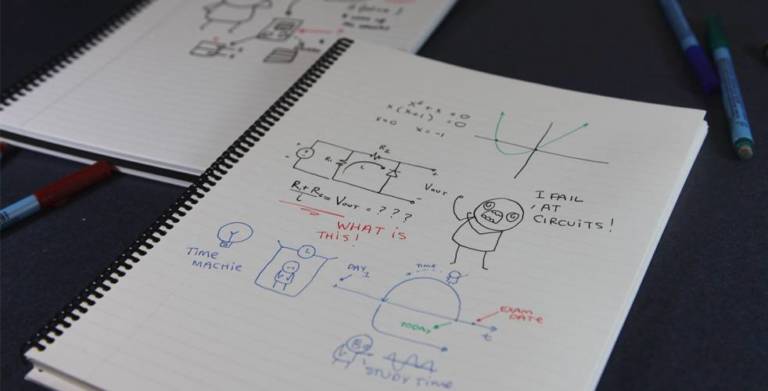 x² + x = 0
x(x+1) = 0
x=0 x=-1
R₂
R₁
L
Vout
R₁+R₂/L = Vout = ???
WHAT IS
THIS!
I FAIL
AT
CIRCUITS!
TIME
MACHIE
DAY
1
TIME
TODAY
EXAM
DATE
t
STUDY TIME